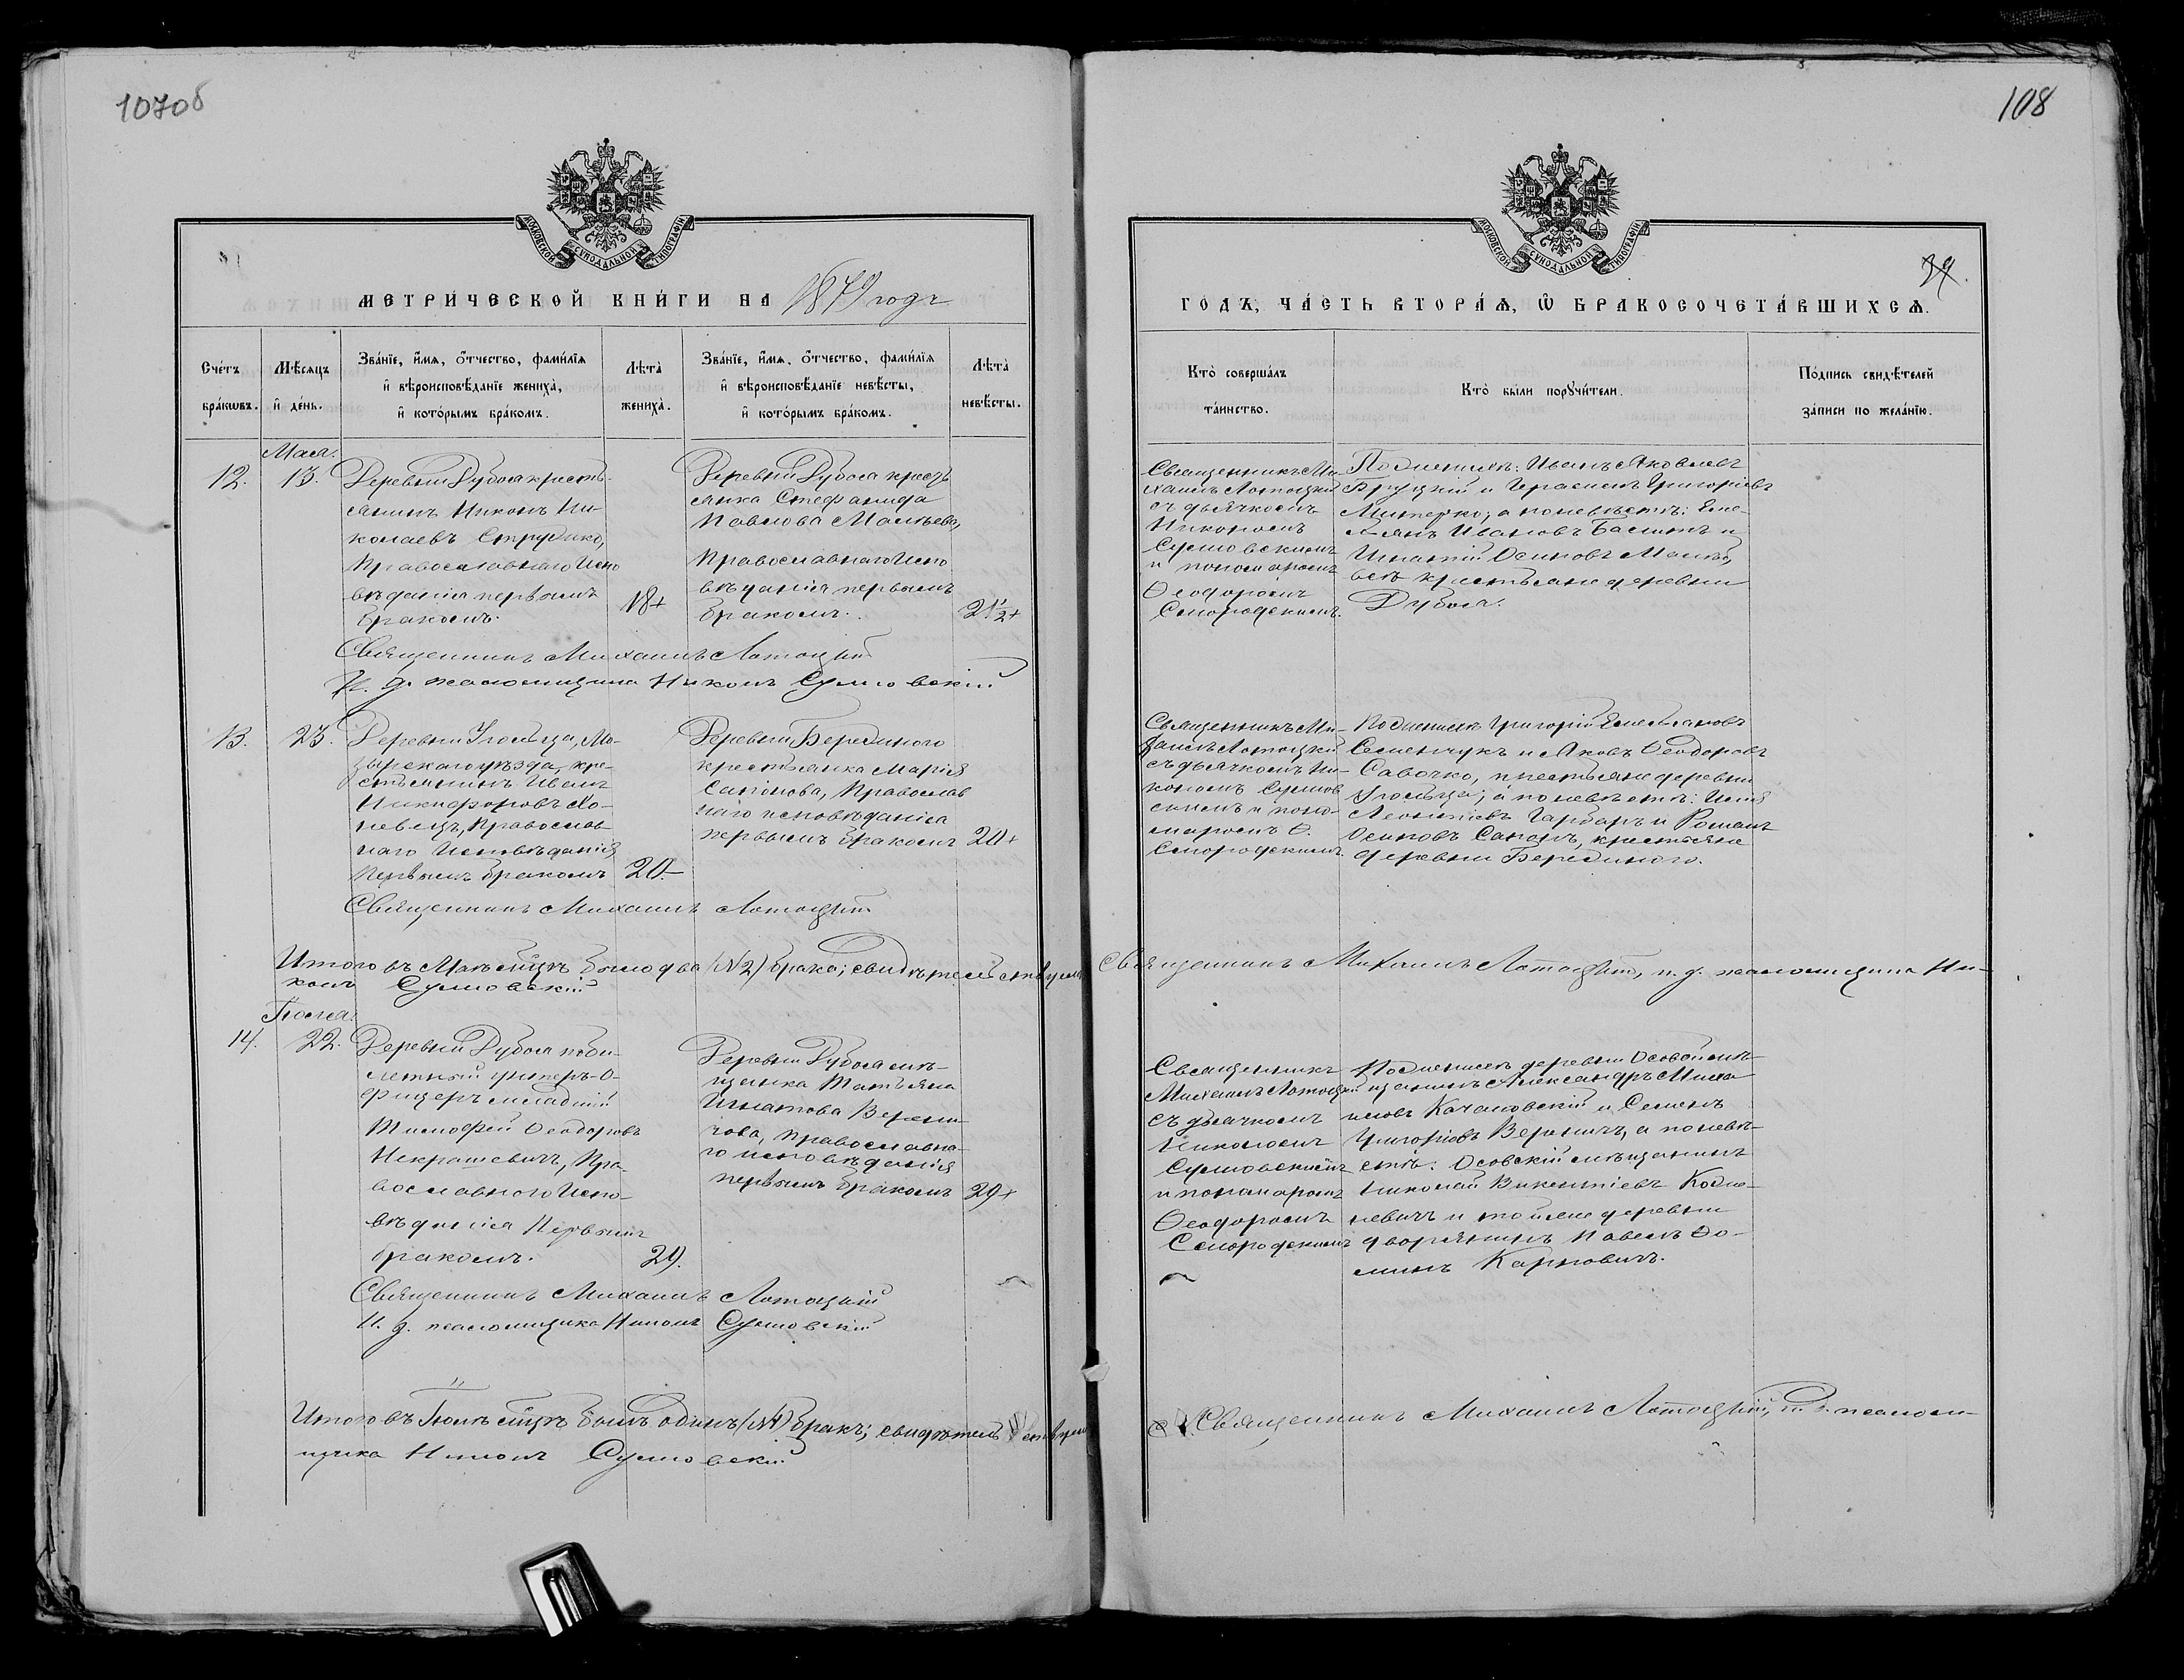 107об
108
МОСКОВСКОЙ СѴНОДАЛЬНОЙ ТИПОГРАФІИ
МОСКОВСКОЙ СѴНОДАЛЬНОЙ ТИПОГРАФІИ
39.
МЕТРИ́ЧЕСКОЙ КНИ́ГИ НА 1879 годъ
ГОДЪ, ЧА́СТЬ ВТОРА́Ѧ, Ѡ҆ БРАКОСОЧЕТА́ВШИХСѦ.
Сче́тъ бра́кѡвъ.
Мѣ́сѧцъ и҆ де́нь.
Зва́нїе, и҆́мѧ, ѻ҆́тчество, фами́лїѧ
и҆ вѣроисповѣ́данїе жениха̀,
и҆ кото́рымъ бра́комъ.
Лѣ́та жениха̀.
Зва́нїе, и҆́мѧ, ѻ҆́тчество, фами́лїѧ
и҆ вѣроисповѣ́данїе невѣ́сты,
и҆ кото́рымъ бра́комъ.
Лѣ́та невѣ́сты.
Кто̀ соверша́лъ
та́инство.
Кто̀ бы́ли порꙋчи́тели.
По́дпись свидѣ́телей
за́писи по жела́нїю.
Мая.
12.
13.
Деревни Дубоя кресть-
янинъ Никонъ Ни-
колаевъ
Православнаго Испо
вѣданія первымъ
бракомъ.
18
Деревни Дубоя крест
янка Стефанида
Павлова
Православнаго Испо
вѣданія первымъ
бракомъ.
21½
Священникъ Ми-
хаилъ Лотоцкій
съ дьячкомъ
Никономъ
Сулковскимъ
и пономаремъ
Ѳеодоромъ
Смородскимъ.
По женихѣ: Иванъ Яковлевъ
и Герасимъ Григоріевъ
а по невѣстѣ: Еме-
льянъ Ивановъ и
Игнатій Осиповъ
всѣ крестьяне деревни
Дубоя.
Священникъ Михаилъ Лотоцкій
И. д. псаломщика Никонъ Сулковскій
13.
23.
Деревни Мо-
зырскаго уѣзда, кре-
стьянинъ Иванъ
Никифоровъ Хо-
невецъ, Православ-
наго Исповѣданія
Первымъ бракомъ
20
Деревни
крестьянка Марія
Сапонова, Православ
наго исповѣданія
первымъ бракомъ
20
Священникъ Ми-
хаилъ Лотоцкій
съ дьячкомъ Ни-
кономъ Сулков
скимъ и поно-
маремъ Ѳ.
Смородскимъ.
По женихѣ Григорій Емельяновъ
Семенчукъ и Яковъ Ѳеодоровъ
Савочко, крестьяне деревни
а по невѣстѣ:
Леонтіевъ Гарбаръ и Романъ
Осиповъ крестьяне
деревни
Священникъ Михаилъ Лотоцкій
Итого въ Маѣ мѣсяцѣ было два (№ 2) брака; свидѣтельствуемъ Священникъ Михаилъ Лотоцкій, и. д. псаломщика Ни-
конъ Сулковскій
Іюня.
14.
22.
Деревни Дубоя
унтеръ-о-
фицеръ младшій
Тимофей Ѳеодоровъ
Некрашевичъ, Пра-
вославнаго Испо-
вѣданія Первымъ
бракомъ.
29.
Деревни Дубоя мѣ-
щанка Татьяна
Игнатова Верени-
чова, Православна-
го исповѣданія
первымъ бракомъ
29
Священникъ
Михаилъ Лотоцкій
съ дьячкомъ
Никономъ
Сулковскимъ
и пономаремъ
Ѳеодоромъ
Смородскимъ
По женихѣ деревни Осовой мѣ-
щанинъ Александръ Миха
иловъ Качановскій и Семенъ
Григоріевъ Вереничъ, а по невѣ-
стѣ: Осовскій мѣщанинъ
Николай Викентіевъ
и той же деревни
дворянинъ Павелъ Ѳо-
минъ Карповичъ.
Священникъ Михаилъ Лотоцкій
И. д. псаломщика Никонъ Сулковскій
Итого въ Іюнѣ мѣсяцѣ былъ одинъ (№ 1) бракъ; свидѣтельствуемъ Священникъ Михаилъ Лотоцкій, и. д. псалом-
щика Никонъ Сулковскій